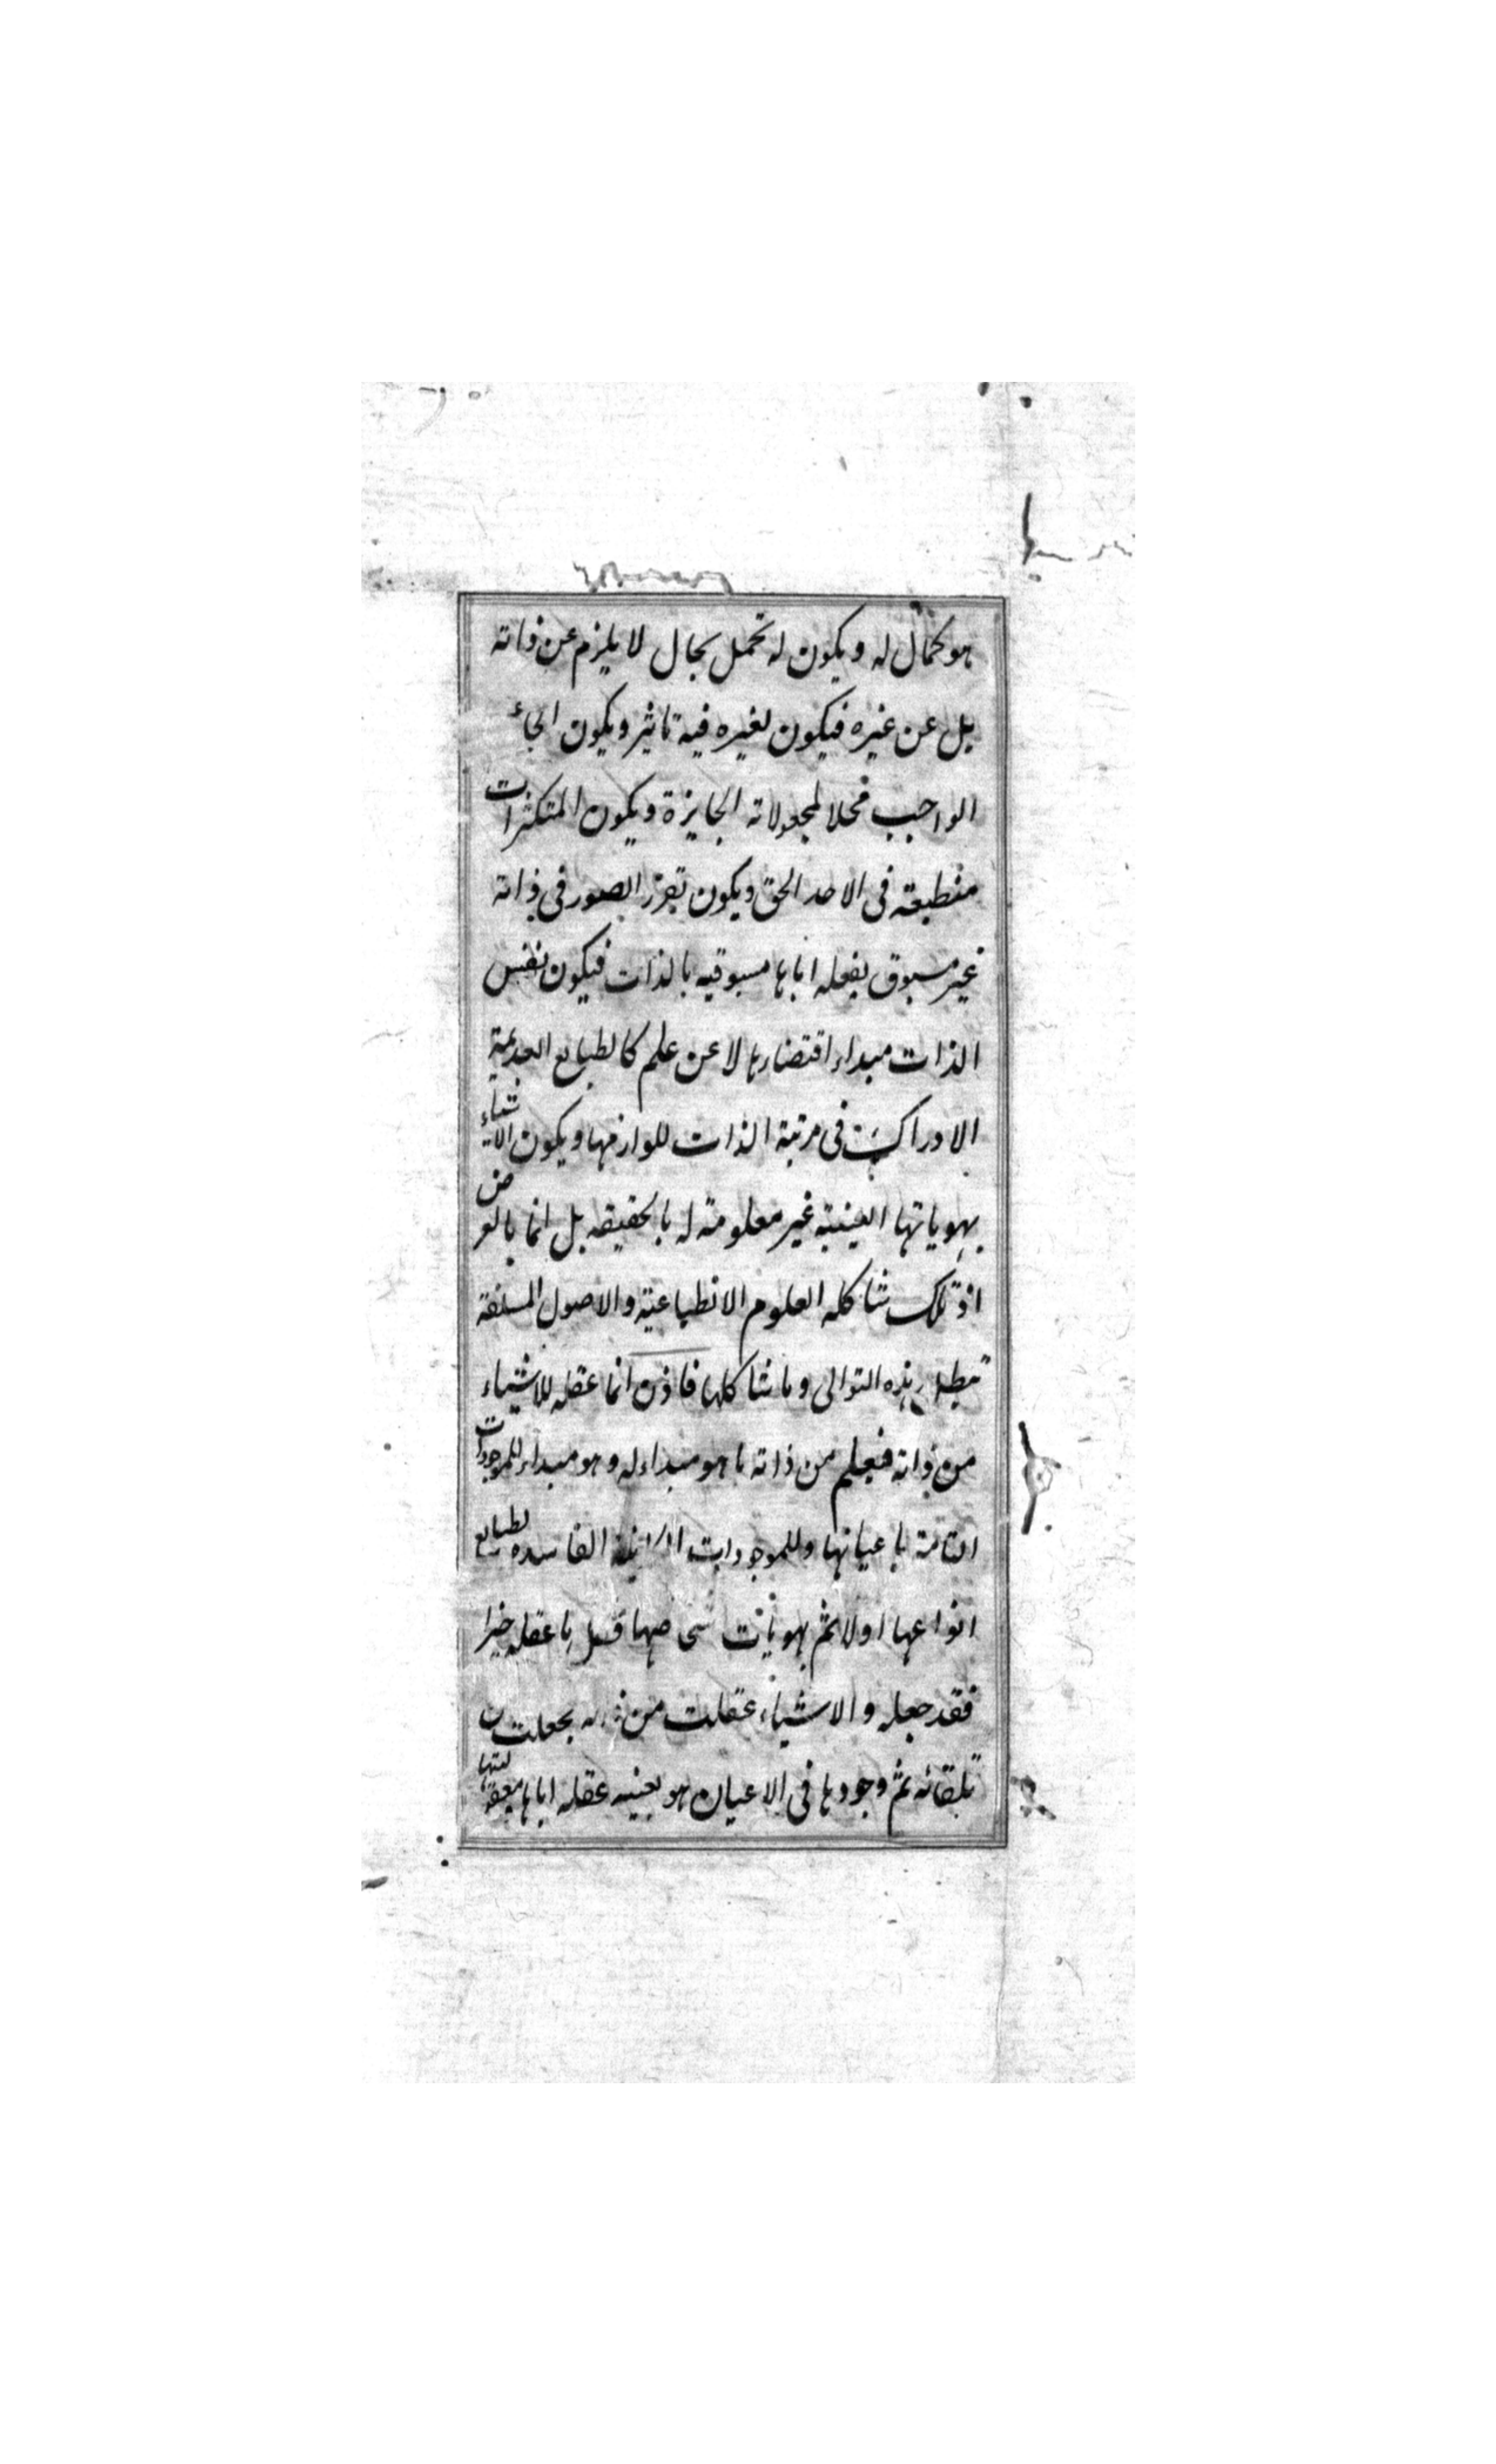 هو كمال له ويكون له تحمل بحال لا يلزم عن ذاته
بل عن غيره فيكون لغيره فيه تاثير ويكون
الواجب محلا لمجعولاته الجايزة ويكون المتكثرات
منطبعة فى الاحد الحق ويكون تقرر الصور فى ذاته
غير مسبوق بفعله اياها مسبوقيه بالذات فيكون نفس
الذات مبداء اقتضاءها لا عن علم كالطبايع العديمة
الادراك فى مرتبة الذات للوازمها ويكون الاشياء
بهوياتها العينية غير معلومة له بالحقيقه بل انما بالعرض
اذ تلك شاكله العلوم الانطباعية والاصول المسلفة
تبطل هذه التوالى وما شاكلها فاذن انما عقله للاشياء
من ذاته فيعلم من ذاته ما هو مبداء له وهو مبداء للموجودات
التامة باعيانها وللموجودات الكاينة الفاسده بطبايع
انواعها اولا ثم بهويات شخصها فكل ما عقله خيرا
فقد جعله والاشياء عقلت من ذاته بجعلت من
تلقائه ثم وجودها فى الاعيان هو بعينه عقله اياها معقوليتها